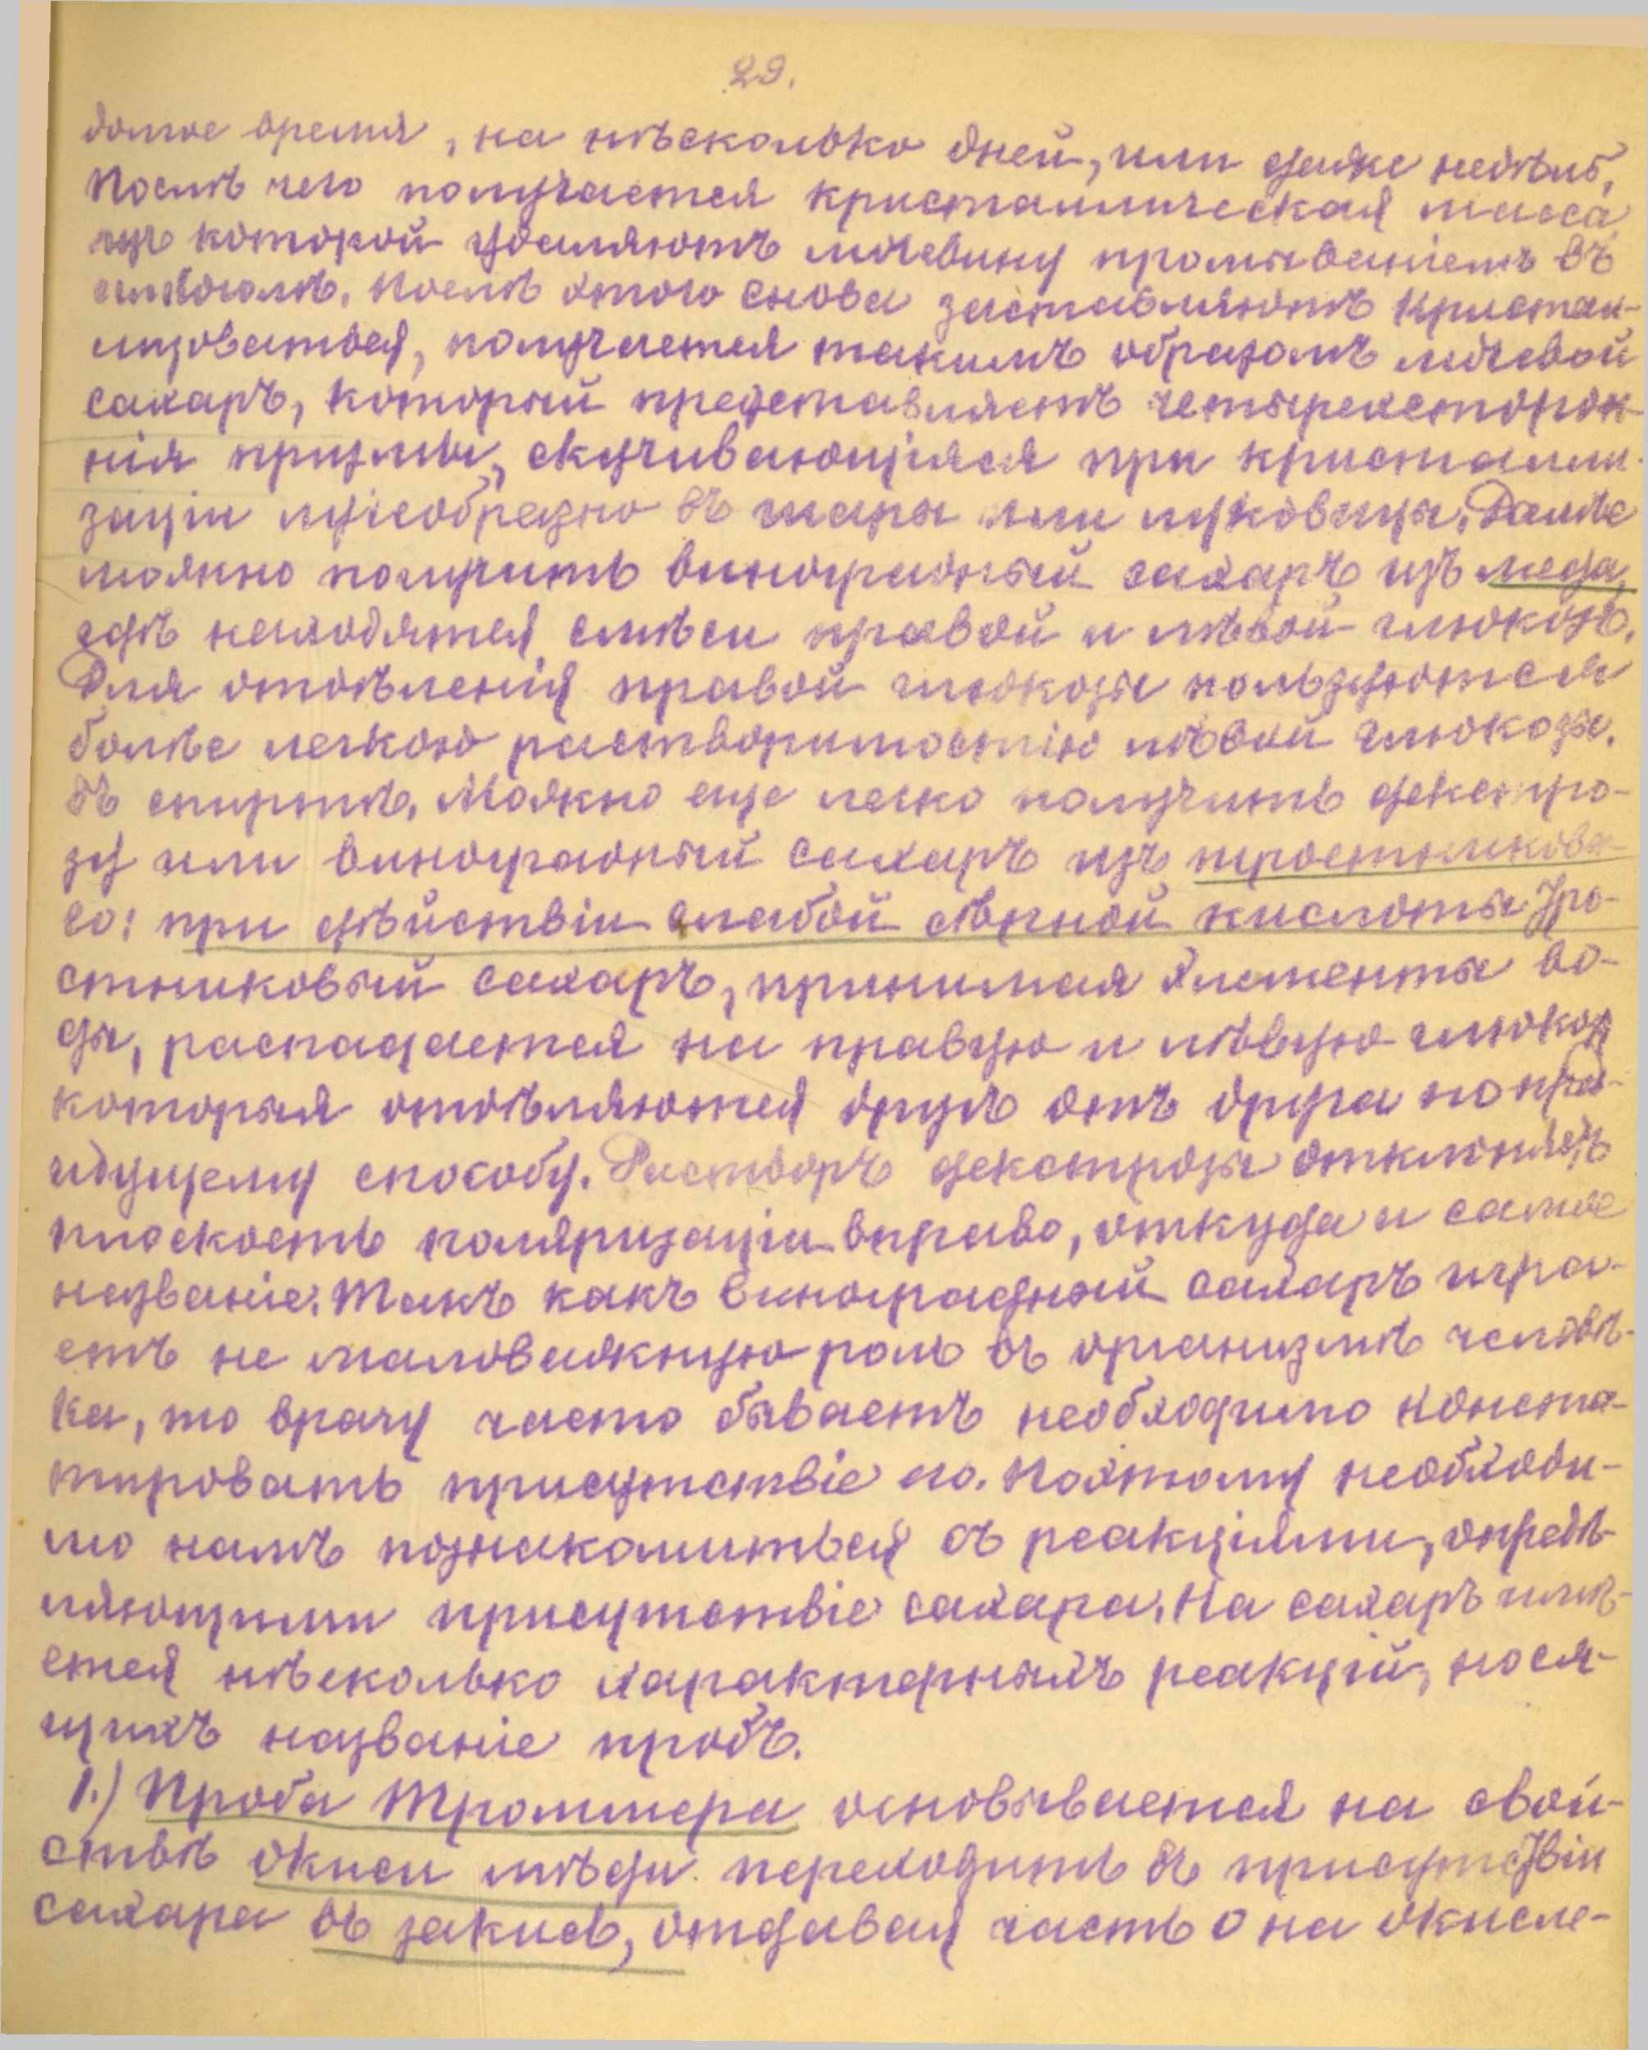 29.
долгое время, на нѣсколько дней, или даже недѣль,
послѣ чего получается кристаллическая масса,
изъ которой удаляютъ мочевину промываніемъ въ
алкоголѣ. Послѣ этого снова заставляютъ кристал-
лизоваться, получается такимъ образомъ мочевой
сахаръ, который представляетъ четырехсторон-
нія призмы, скучивающіяся при кристалли-
заціи лучеобразно въ шары или луковицы. Далѣе
можно получить виноградный сахаръ изъ меда,
гдѣ находятся смѣси правой и лѣвой глюкозъ.
Для отдѣленія правой глюкозы пользуются
болѣе легкою растворимостію лѣвой глюкозы.
въ спиртѣ. Можно еще легко получить декстро-
зу или виноградный сахаръ изъ тростниково-
го: при дѣйствіи слабой сѣрной кислоты тро-
стниковый сахаръ, принимая элементы во-
ды, распадается на правую и лѣвую глюкозу
которыя отдѣляются другъ отъ друга по пред-
идущему способу. Растворъ декстрозы отклоняетъ
плоскость поляризаціи вправо, откуда и самое
названіе. Такъ какъ виноградный сахаръ игра-
етъ не маловажную роль въ организмѣ человѣ-
ка, то врачу часто бываетъ необходимо конста-
тировать присутствіе его. Поэтому необходи-
мо намъ познакомиться съ реакціями, опредѣ-
ляющими присутствіе сахара. На сахаръ имѣ-
ется нѣсколько характерныхъ реакцій, нося-
щихъ названіе пробъ.
1.) Проба Троммера основывается на свой-
ствѣ окиси мѣди переходить въ присутствіи
сахара въ закись, отдавая часть О на окисле-